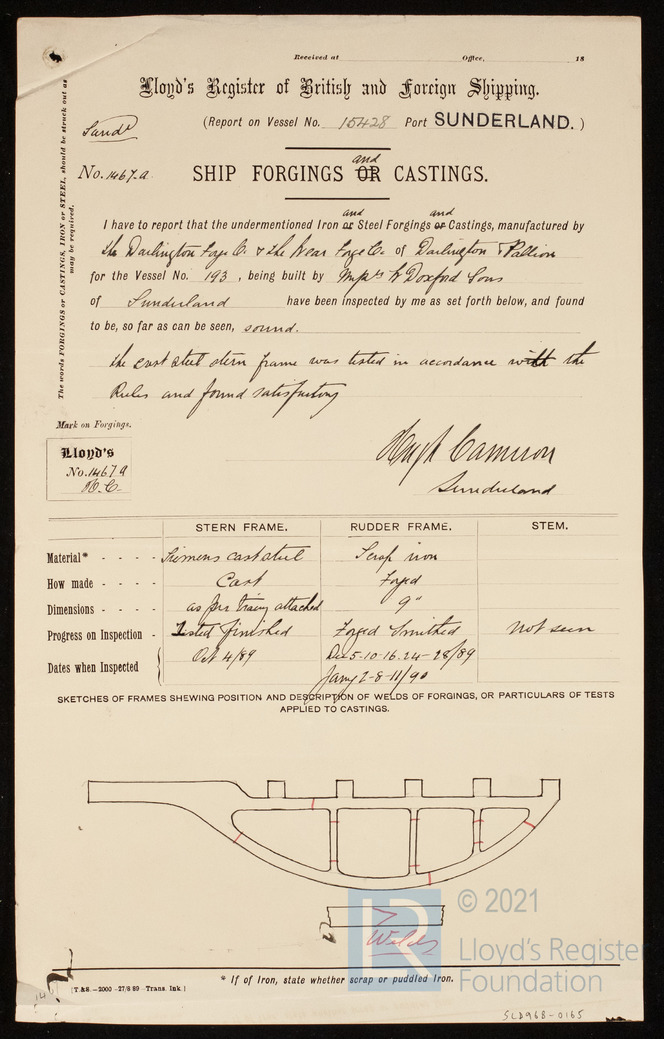 Received at Office, 18
Lloyd's Register of British and Foreign Shipping.
(Report on Vessel No. 15428 Port SUNDERLAND.)
Sund
No. 1467.a
and
SHIP FORGINGS OR CASTINGS.
The words FORGINGS or CASTINGS, IRON or STEEL, should be struck out as
may be required.
and and
I have to report that the undermentioned Iron or Steel Forgings or Castings, manufactured by
the Darlington Forge Co. & the Wear Forge Co. of Darlington & Pallion
for the Vessel No. 193, being built by Messrs W Doxford Sons
of Sunderland have been inspected by me as set forth below, and found
to be, so far as can be seen, sound.
The cast steel stern frame was tested in accordance with the
Rules and found satisfactory
Mark on Forgings.
Lloyd's
No. 1467 a
H.C.
Hugh Cameron
Sunderland
STERN FRAME. RUDDER FRAME. STEM.
Material* - - - - Siemens cast steel Scrap iron
How made - - - - Cast Forged
Dimensions - - - - as per tracing attached 9"
Progress on Inspection - Tested finished Forged Smithed Not seen
Dates when Inspected Oct 4/89 Dec 5-10-16.24-28/89
Jany 2-8-11/90
SKETCHES OF FRAMES SHEWING POSITION AND DESCRIPTION OF WELDS OF FORGINGS, OR PARTICULARS OF TESTS
APPLIED TO CASTINGS.
Welds
LR
© 2021
Lloyd's Register
Foundation
* If of Iron, state whether scrap or puddled Iron.
[T.&S.—2000—27/8 89—Trans. Ink.]
SLD968-0165